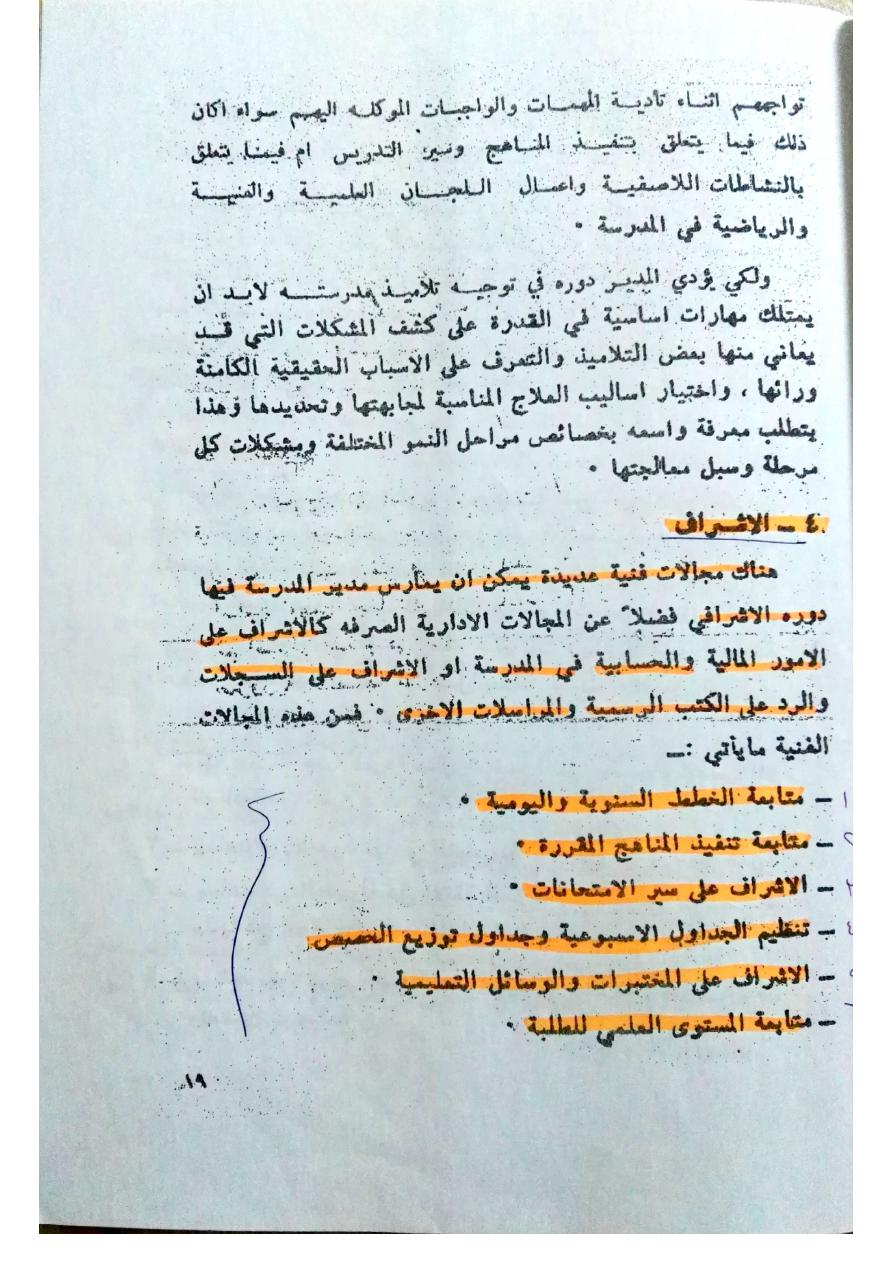 تواجههم اثناء تأدية المهمات والواجبات الموكله اليهم سواء اكان
ذلك فيما يتعلق بتنفيذ المناهج وسير التدريس ام فيما يتعلق
بالنشاطات اللاصفية واعمال اللجان العلمية والفنية
والرياضية في المدرسة ٠
ولكي يؤدي المدير دوره في توجيه تلاميذ مدرسته لابد ان
يمتلك مهارات اساسية في القدرة على كشف المشكلات التي قد
يعاني منها بعض التلاميذ والتعرف على الاسباب الحقيقية الكامنة
ورائها ، واختيار اساليب العلاج المناسبة لمجابهتها وتحديدها وهذا
يتطلب معرفة واسعه بخصائص مراحل النمو المختلفة ومشكلات كل
مرحلة وسبل معالجتها ٠
٤ ــ الاشراف
هناك مجالات فنية عديدة يمكن ان يمارس مدير المدرسة فيها
دوره الاشرافي فضلاً عن المجالات الادارية الصرفه كالاشراف على
الامور المالية والحسابية في المدرسة او الاشراف على السجلات
والرد على الكتب الرسمية والمراسلات الاخرى ٠ فمن هذه المجالات
الفنية مايأتي :ــ
١ ــ متابعة الخطط السنوية واليومية ٠
٢ ــ متابعة تنفيذ المناهج المقررة ٠
٣ ــ الاشراف على سير الامتحانات ٠
٤ ــ تنظيم الجداول الاسبوعية وجداول توزيع الحصص
٥ ــ الاشراف على المختبرات والوسائل التعليمية ٠
٦ ــ متابعة المستوى العلمي للطلبة ٠
١٩